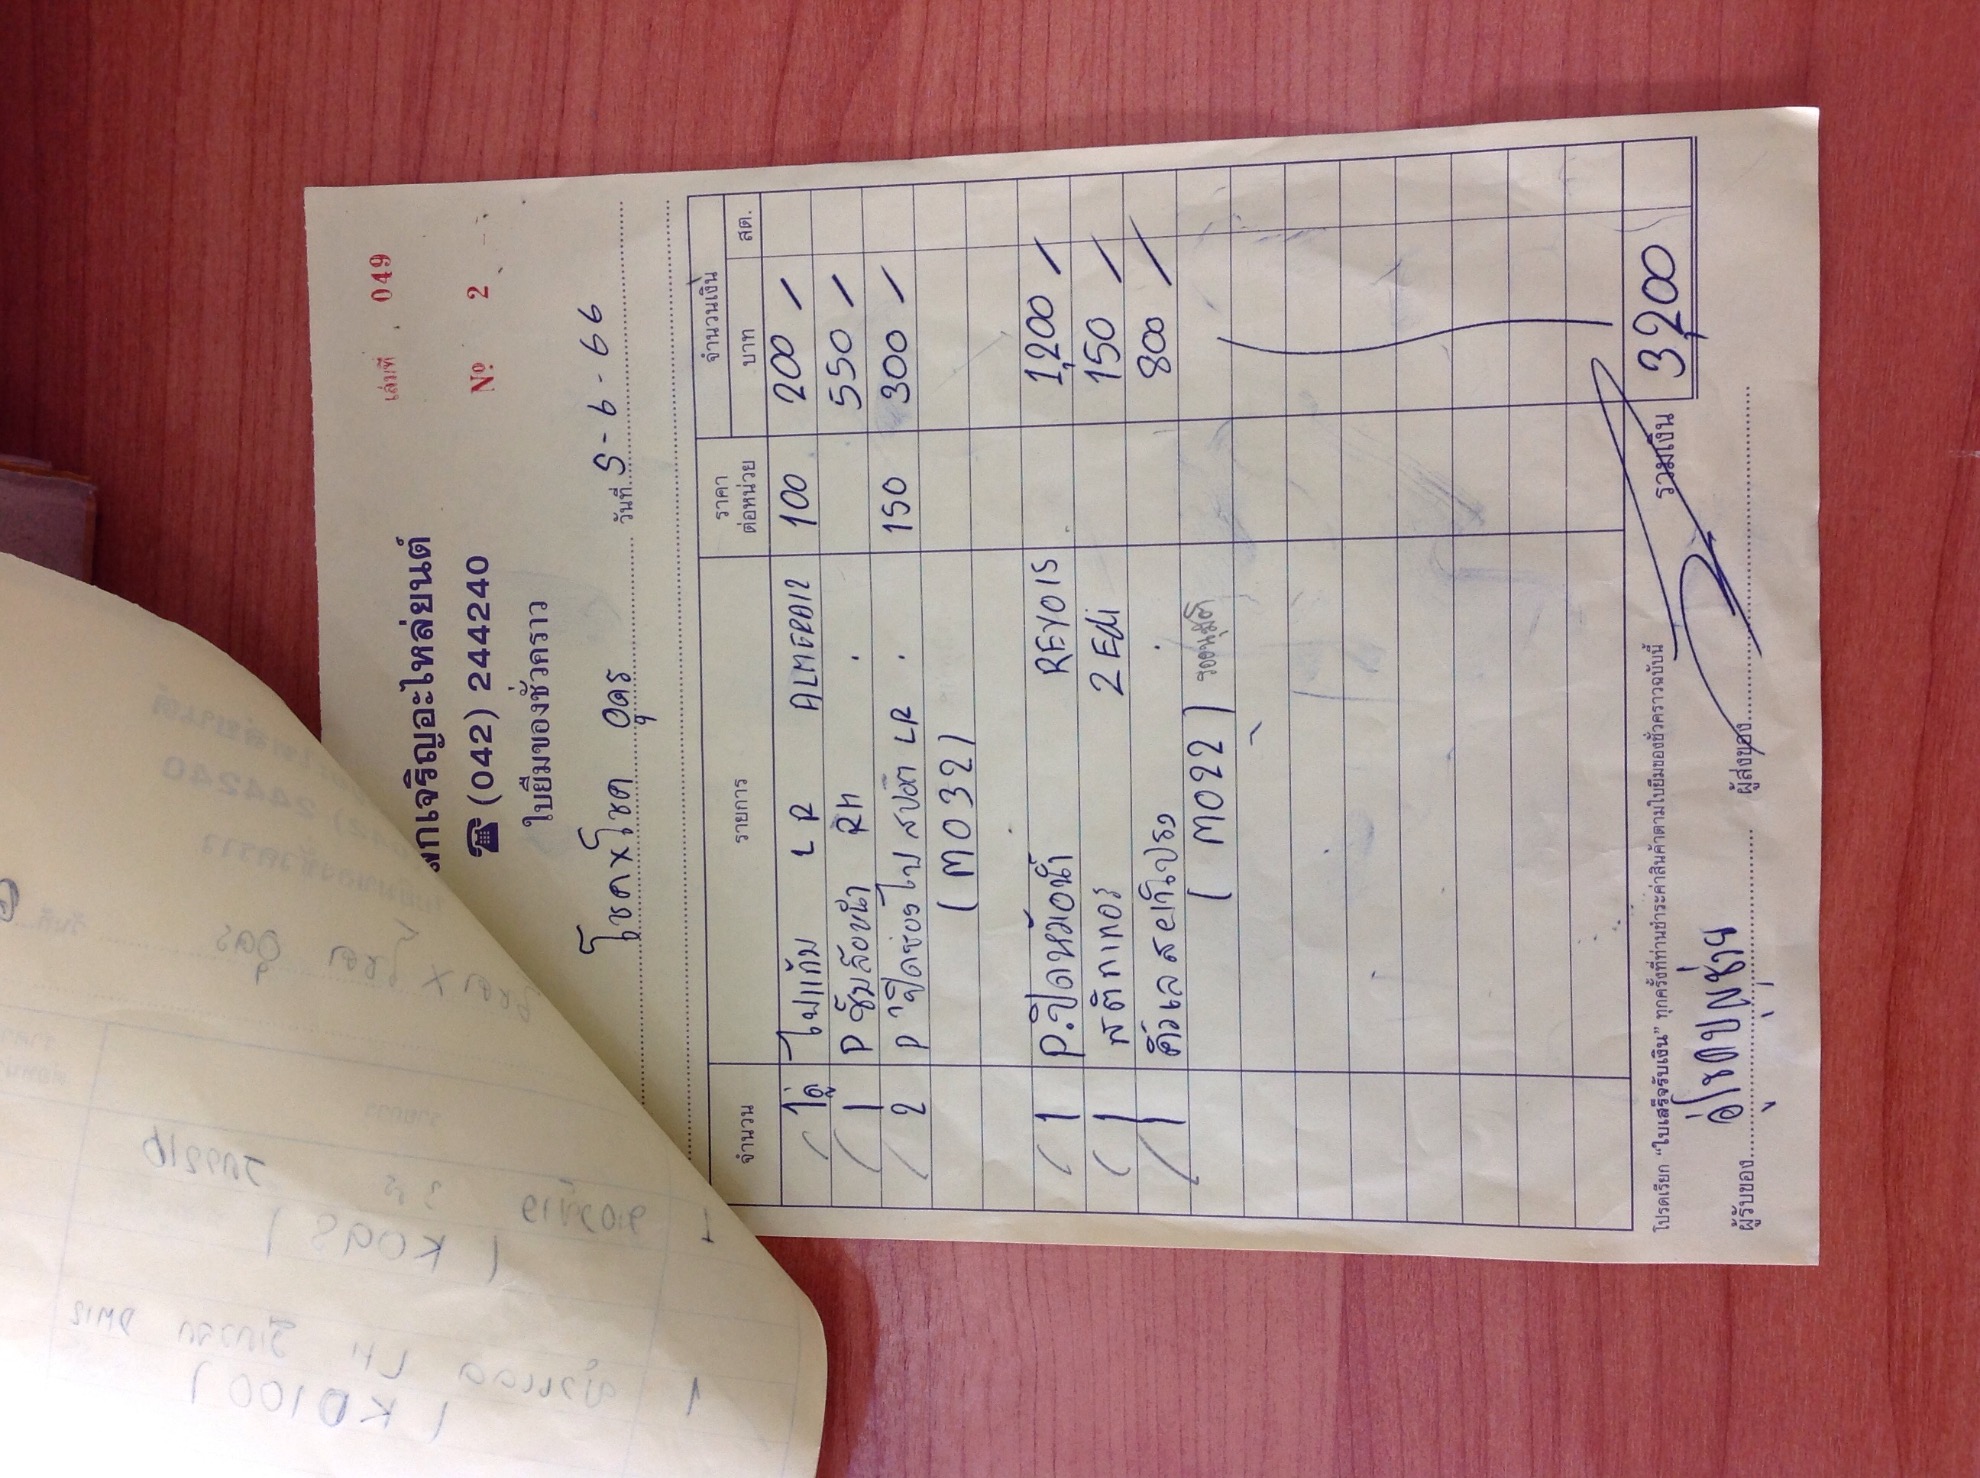 เล่มที่ 049
Nº 2
เจริญอะไหล่ยนต์
☎ (042) 244240
ใบยืมของชั่วคราว
โชค x โชค อุดร วันที่ 5-6-66
จำนวน รายการ ราคาต่อหน่วย จำนวนเงิน บาท สต.
1คู่ ไฟแก้ม LR ALMERA12 100 200 /
1 P ซุ้มล้อหน้า RH 550 /
2 P ปิดช่องไฟสปอต LR 150 300 /
(M032)
1 P.ปิดหม้อน้ำ REVO15 1,200 /
1 สติกเกอร์ 2 Edi 150 /
1 800 /
(M022)
รวมเงิน 3,200
โปรดเรียก "ใบเสร็จรับเงิน" ทุกครั้งที่ท่านชำระค่าสินค้าตามใบยืมของชั่วคราวฉบับนี้
ผู้รับของ ผู้ส่งของ
(K098)
(KD100)